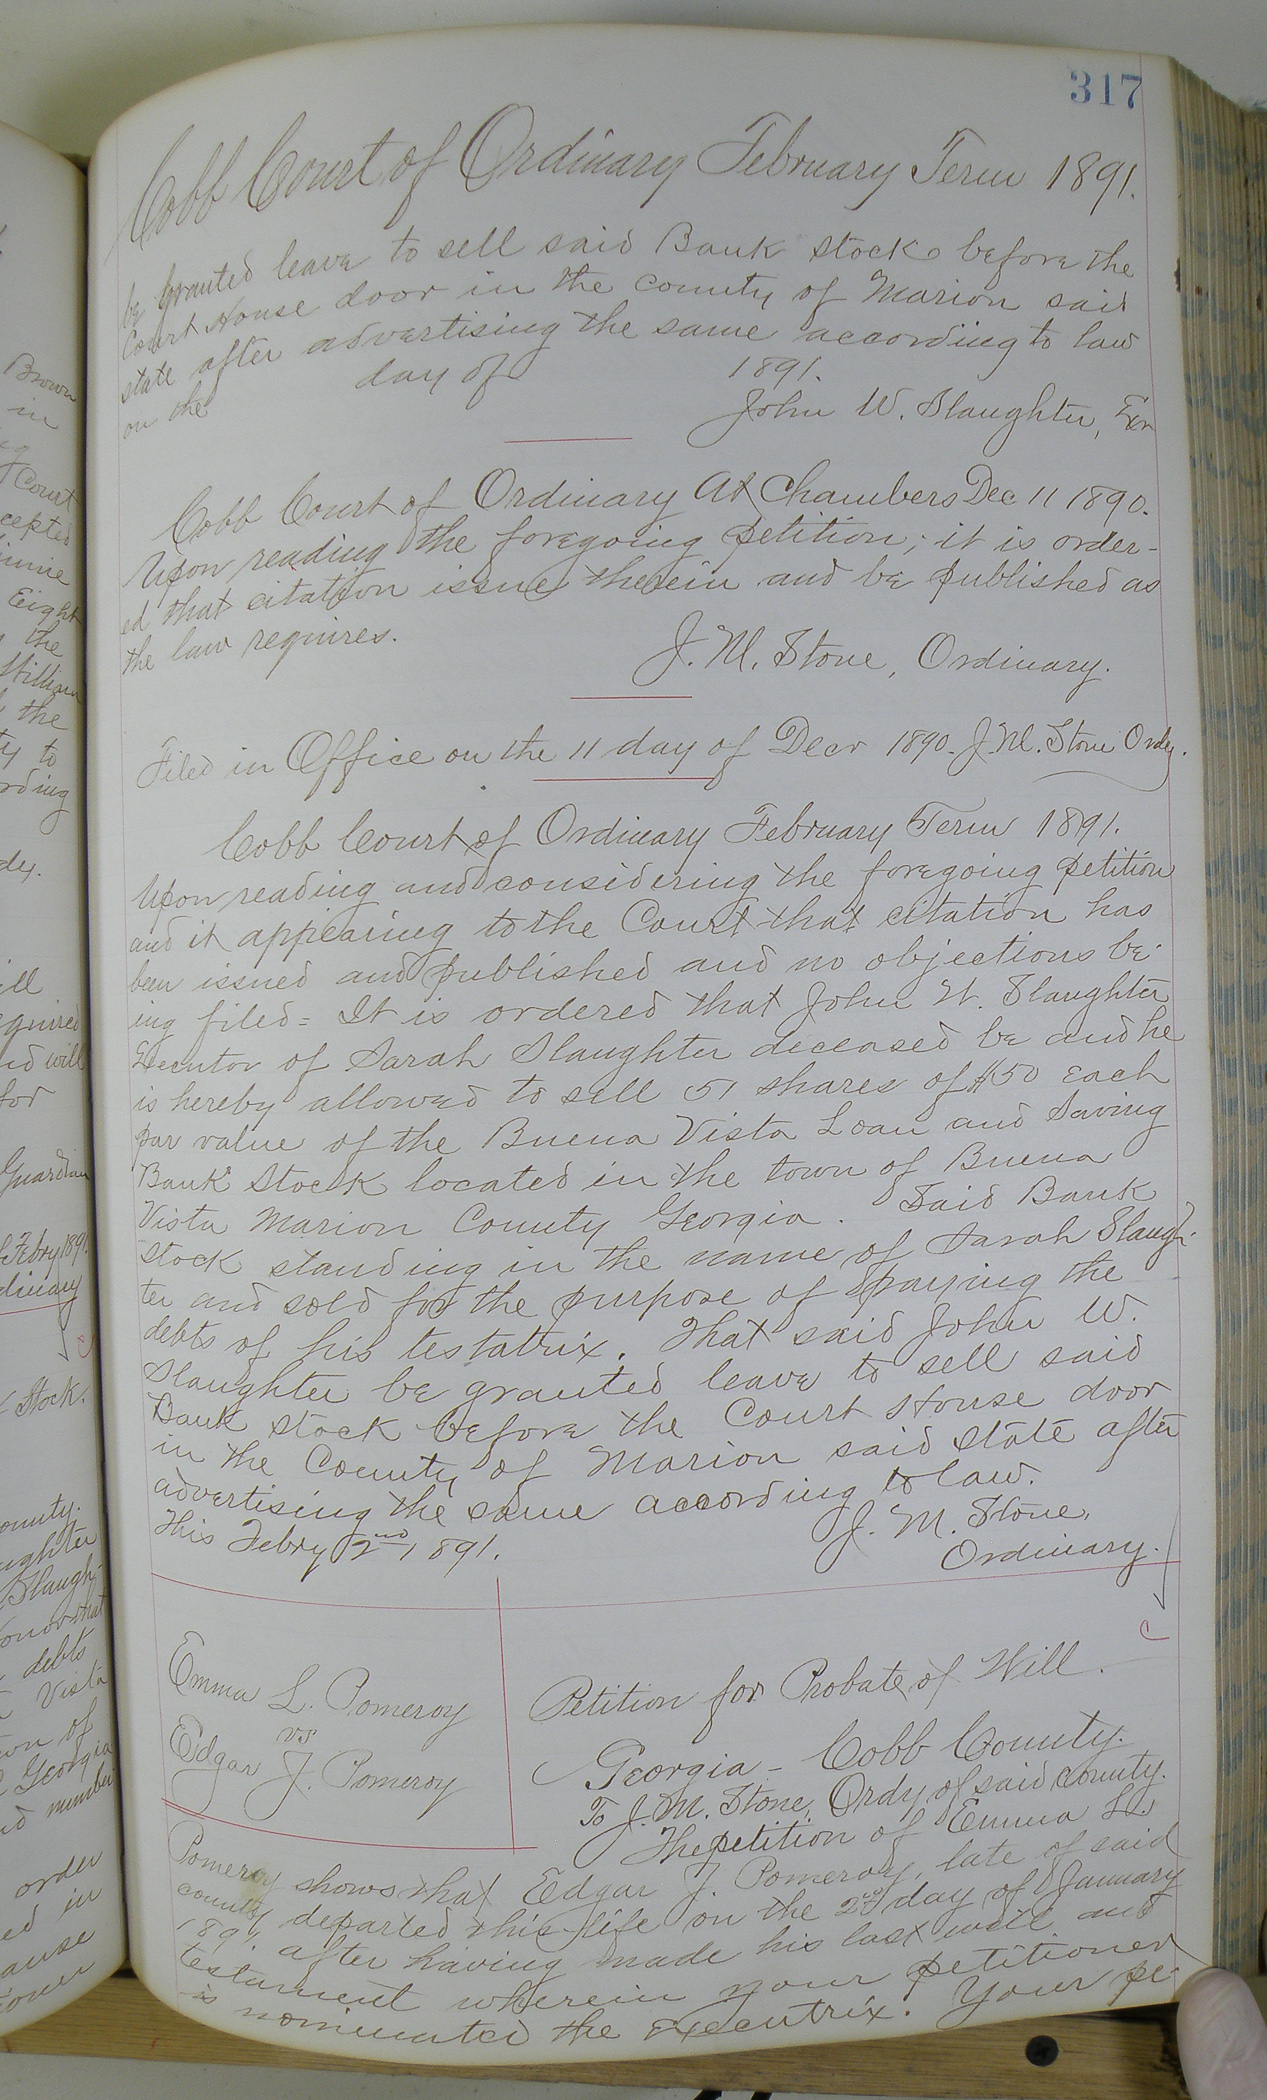 317
Cobb Court of Ordinary February Term 1891.
be granted leave to sell said Bank stock before the
Court House door in the county of Marion said
state after advertising the same accordiing to law
on the day of 1891.
John W. Slaughter, Exr
Cobb Court of Ordinary At Chambers Dec 11 1890.
Upon reading the foregoing petition; it is order-
ed that citation issue therein and be published as
the law requires.
J. M. Stone, Ordinary.
Filed in Office on the 11 day of Decr 1890. J. M. Stone Ordy.
Cobb Court of Ordinary February Term 1891.
Upon reading and considering the foregoing petition
and it appearing to the Court that citation has
been issued and published and no objections be-
ing filed = It is ordered that John W. Slaughter
Executor of Sarah Slaughter deceased be and he
is hereby allowed to sell 51 shares of $50 each
par value of the Buena Vista Loan and Saving
Bank Stock located in the town of Buena
Vista Marion County Georgia. Said Bank
stock standing in the name of Sarah Slaugh-
ter and sold for the purpose of paying the
debts of his testatrix. That said John W.
Slaughter be granted leave to sell said
Bank stock before the Court House door
in the County of Marion said state after
advertising the same according to law.
This Febry 2nd 1891.
J. M. Stone,
Ordinary.
Emma L. Pomeroy
vs
Edgar J. Pomeroy
Petition for Probate of Will.
Georgia - Cobb County.
To J. M. Stone, Ordy of said County.
The petition of Emma L.
Pomeroy shows that Edgar J. Pomeroy, late of said
county departed this life on the 2nd day of January
1891, after having made his last will and
testament wherein your petitioner
is nominated the executrix. Your pe-
Brown
in
Court
cepted
Eight
the
the
ty to
rding
dy.
ill
equired
nd will
for
Guardian
Febry 1891
dinary
Stock.
ounty.
ughter
Slaugh-
debts
Vista
wn of
Georgia
number
order
ed in
ause